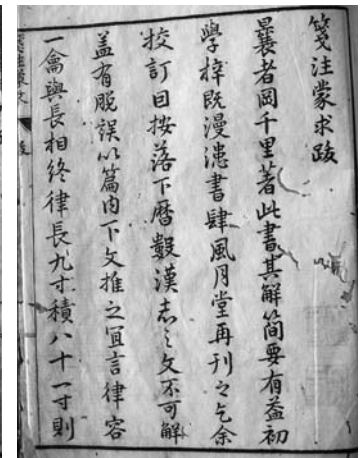 箋注蒙求跋
曩者岡千里著此書其解簡要有益初
學梓既漫漶書肆風月堂再刊之乞余
挍訂因按落下暦數漢志之文不可解
蓋有脱誤以篇内下文推之宜言律容
一龠與長相終律長九寸積八十一寸則